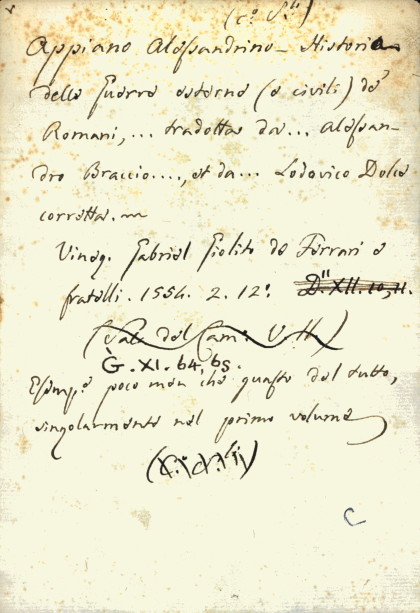 (c.º S.ᵗⁱ)
Appiano Alessandrino – Historia
delle Guerre esterne (e civili) de'
Romani, ... tradotta da ... Alessan-
dro Braccio ...., et da ... Lodovico Dolce
corretta. in
Vineg. Gabriel Giolito de Ferrari e
fratelli. 1554. 2. 12º. D.XII.10,11.
(Sala del Cam.º V.H)
G.XI.64,65.
Esemp.e poco men che guasto del tutto,
singolarmente nel primo volume
C